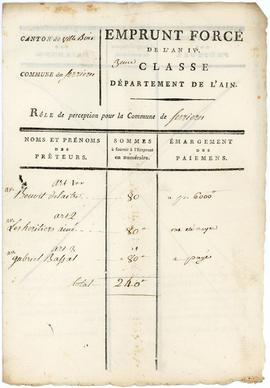 CANTON de Villebois
EMPRUNT FORCÉ
DE L'AN IV.
CLASSE
COMMUNE de
DÉPARTEMENT DE L'AIN.
RÔLE de perception pour la Commune de
NOMS ET PRÉNOMS DES PRÊTEURS.
SOMMES à fournir à l'Emprunt en numéraire.
ÉMARGEMENT DES PAIEMENS.
art 1er
Benoit 80
art 2
Les héritiers 80
art 3
gabriel 80 payé
total 240